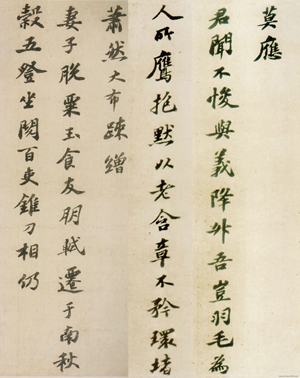 莫應
君聞不悛與義降外吾豈羽毛為
人所鷹抱默以老含章不矜環堵
蕭然大布疎繒
妻子脫粟玉食友朋軾遷于南秋
穀五登坐閱百吏錐刀相仍